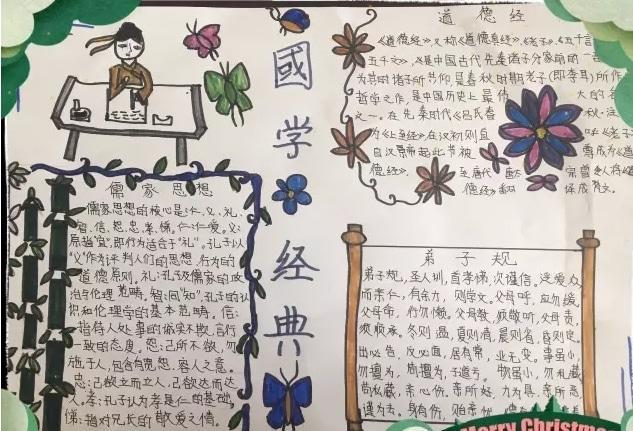 國学经典
道德经
《道德经》，又称《道德真经》、《老子》、《五千言》
五千文》，《是中国古代先秦诸子分家前的一
为其时诸子所共仰，是春秋时期老子（即李耳）所作
哲学之作，是中国历史上最伟大的名
之一。在先秦时代《吕氏春秋·注
为《上至经》，在汉初则直呼《老子
自汉景帝起此书被尊为道
德经》，至唐代
儒家思想
儒家思想的核心是：仁、义、礼、
智、信、恕、忠、孝、悌。仁：仁爱。义：
原指"宜"，即行为适合于"礼"。孔子以
"义"作为评判人们的思想、行为的
道德原则。礼：孔子及儒家的政
治与伦理范畴。智：同"知"，孔子的认
识和伦理学的基本范畴。信：
指待人处事的诚实不欺，言行
一致的态度。恕：己所不欲，勿
施于人，包含有宽恕、容人之意。
忠：己欲立而立人，己欲达而达
人。孝：孔子认为孝是仁的基础。
悌：指对兄长的敬爱之情。
弟子规
弟子规，圣人训，首孝悌，次谨信。泛爱众，
而亲仁，有余力，则学文。父母呼，应勿缓，
父母命，行勿懒。父母教，须敬听，父母责，
须顺承。冬则温，夏则凊，晨则省，昏则定。
出必告，反必面，居有常，业无变。事虽小，
勿擅为，苟擅为，子道亏。物虽小，勿私藏，
苟私藏，亲心伤。亲所好，力为具，亲所恶，
谨为去。身有伤，贻亲忧，德有
Merry Christmas